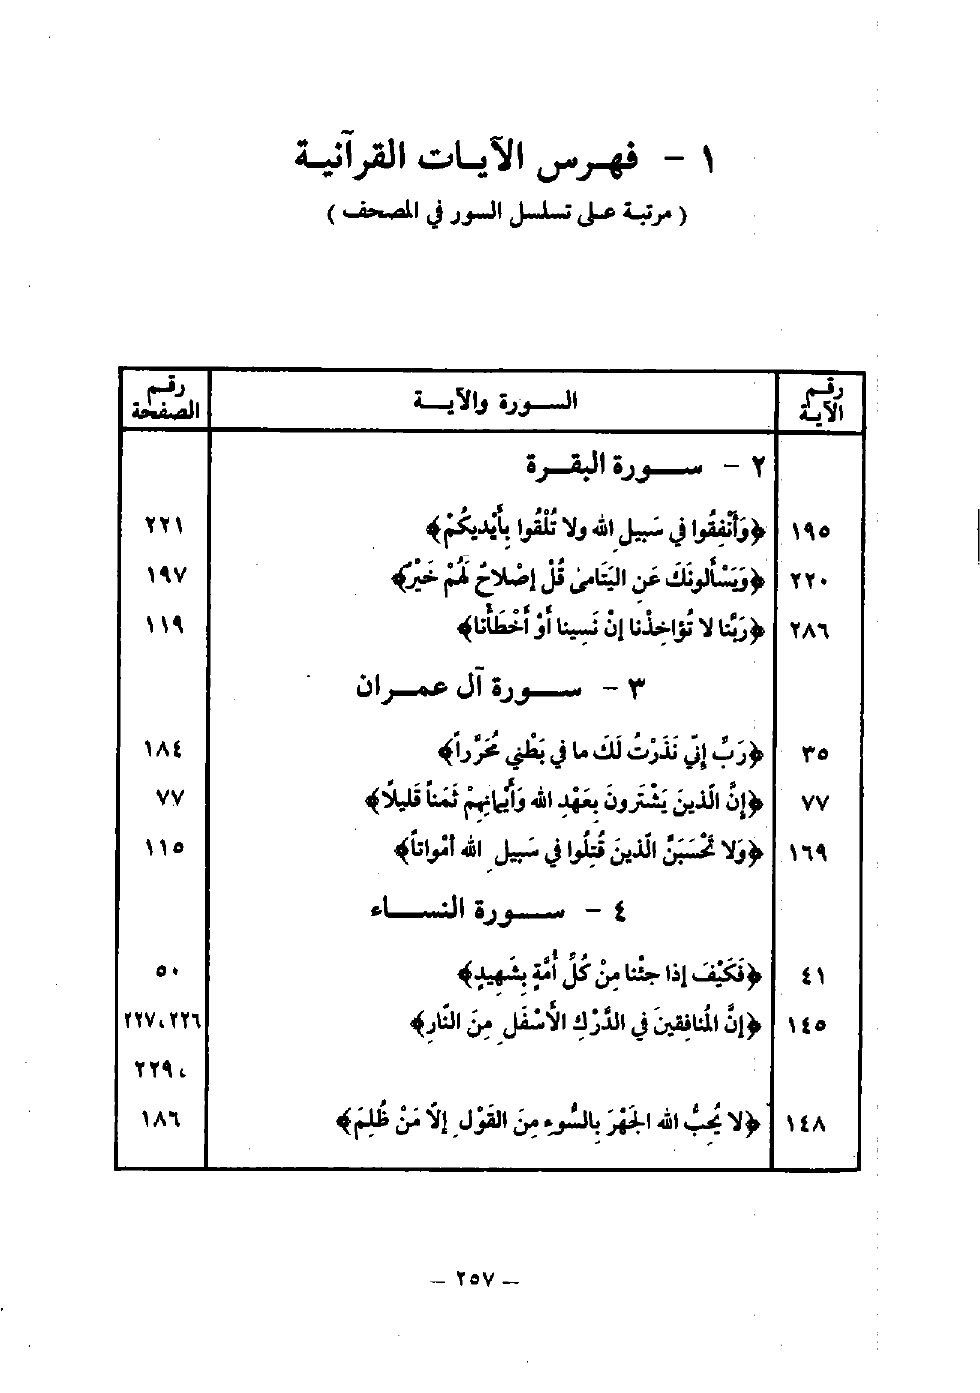 ١ - فهرس الآيات القرآنية
( مرتبة على تسلسل السور في المصحف )
رقم الآية السورة والآية رقم الصفحة
٢ - سورة البقرة
١٩٥ ﴿وَأَنْفِقُوا في سَبيلِ الله ولا تُلْقُوا بِأَيْديكُمْ﴾ ٢٢١
٢٢٠ ﴿وَيَسْأَلونَكَ عَنِ اليَتَامىٰ قُلْ إصْلاحٌ لَهُمْ خَيْرٌ﴾ ١٩٧
٢٨٦ ﴿رَبَّنا لا تُؤاخِذْنا إنْ نَسِينا أَوْ أَخْطَأْنا﴾ ١١٩
٣ - سورة آل عمران
٣٥ ﴿رَبِّ إنِّي نَذَرْتُ لَكَ ما في بَطْني مُحَرَّراً﴾ ١٨٤
٧٧ ﴿إنَّ الَّذينَ يَشْتَرونَ بِعَهْدِ الله وَأَيْمانِهِمْ ثَمَناً قَليلاً﴾ ٧٧
١٦٩ ﴿وَلا تَحْسَبَنَّ الَّذينَ قُتِلُوا في سَبيلِ الله أمْواتاً﴾ ١١٥
٤ - سورة النساء
٤١ ﴿فَكَيْفَ إذا جِئْنا مِنْ كُلِّ أُمَّةٍ بِشَهيدٍ﴾ ٥٠
١٤٥ ﴿إنَّ المُنافِقينَ في الدَّرْكِ الأَسْفَلِ مِنَ النَّارِ﴾ ٢٢٦، ٢٢٧
، ٢٢٩
١٤٨ ﴿لا يُحِبُّ الله الجَهْرَ بِالسُّوءِ مِنَ القَوْلِ إلاّ مَنْ ظُلِمَ﴾ ١٨٦
— ٢٥٧ —